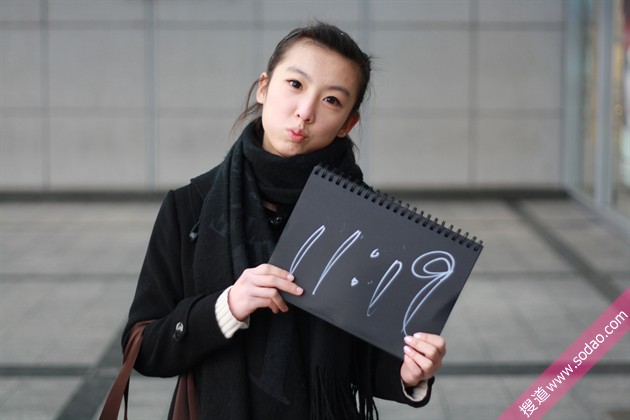 11:19
搜道www.sodao.com